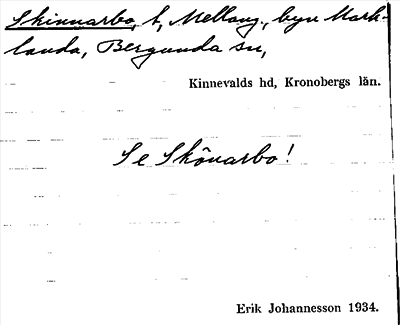 Skinnarbo, t, Mellang., byn Mark-
landa, Bergunda sn,
Kinnevalds hd, Kronobergs län.
Se Skönarbo!
Erik Johannesson 1934.